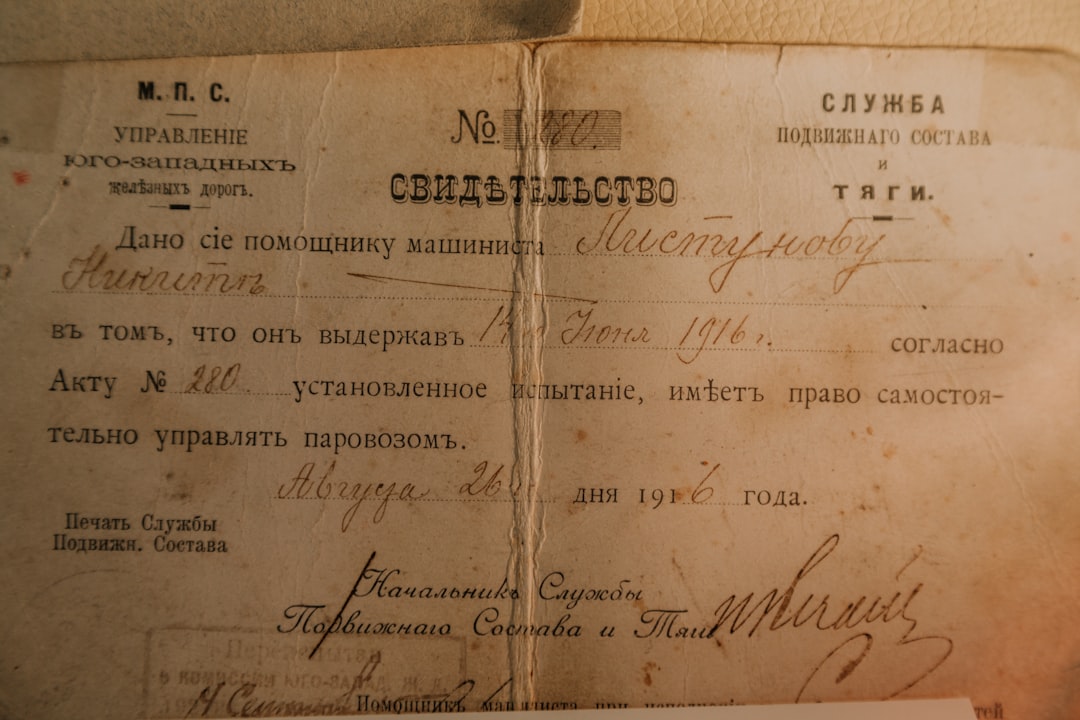 М. П. С.
УПРАВЛЕНІЕ
ЮГО-ЗАПАДНЫХЪ
желѣзныхъ дорогъ.
№ 280.
СЛУЖБА
ПОДВИЖНАГО СОСТАВА
и
ТЯГИ.
СВИДѢТЕЛЬСТВО
Дано сіе помощнику машиниста Листунову
Никитѣ
въ томъ, что онъ выдержавъ Іюня 1916 г. согласно
Акту № 280. установленное испытаніе, имѣетъ право самостоя-
тельно управлять паровозомъ.
Августа 26 дня 1916 года.
Печать Службы
Подвижн. Состава
Начальникъ Службы
Подвижнаго Состава и Тяги
Перепытан
в комиссии Юго-Запад. ж. д.
Помощникъ машиниста при